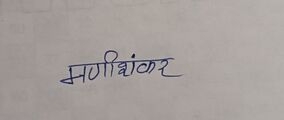 मणीशंकर